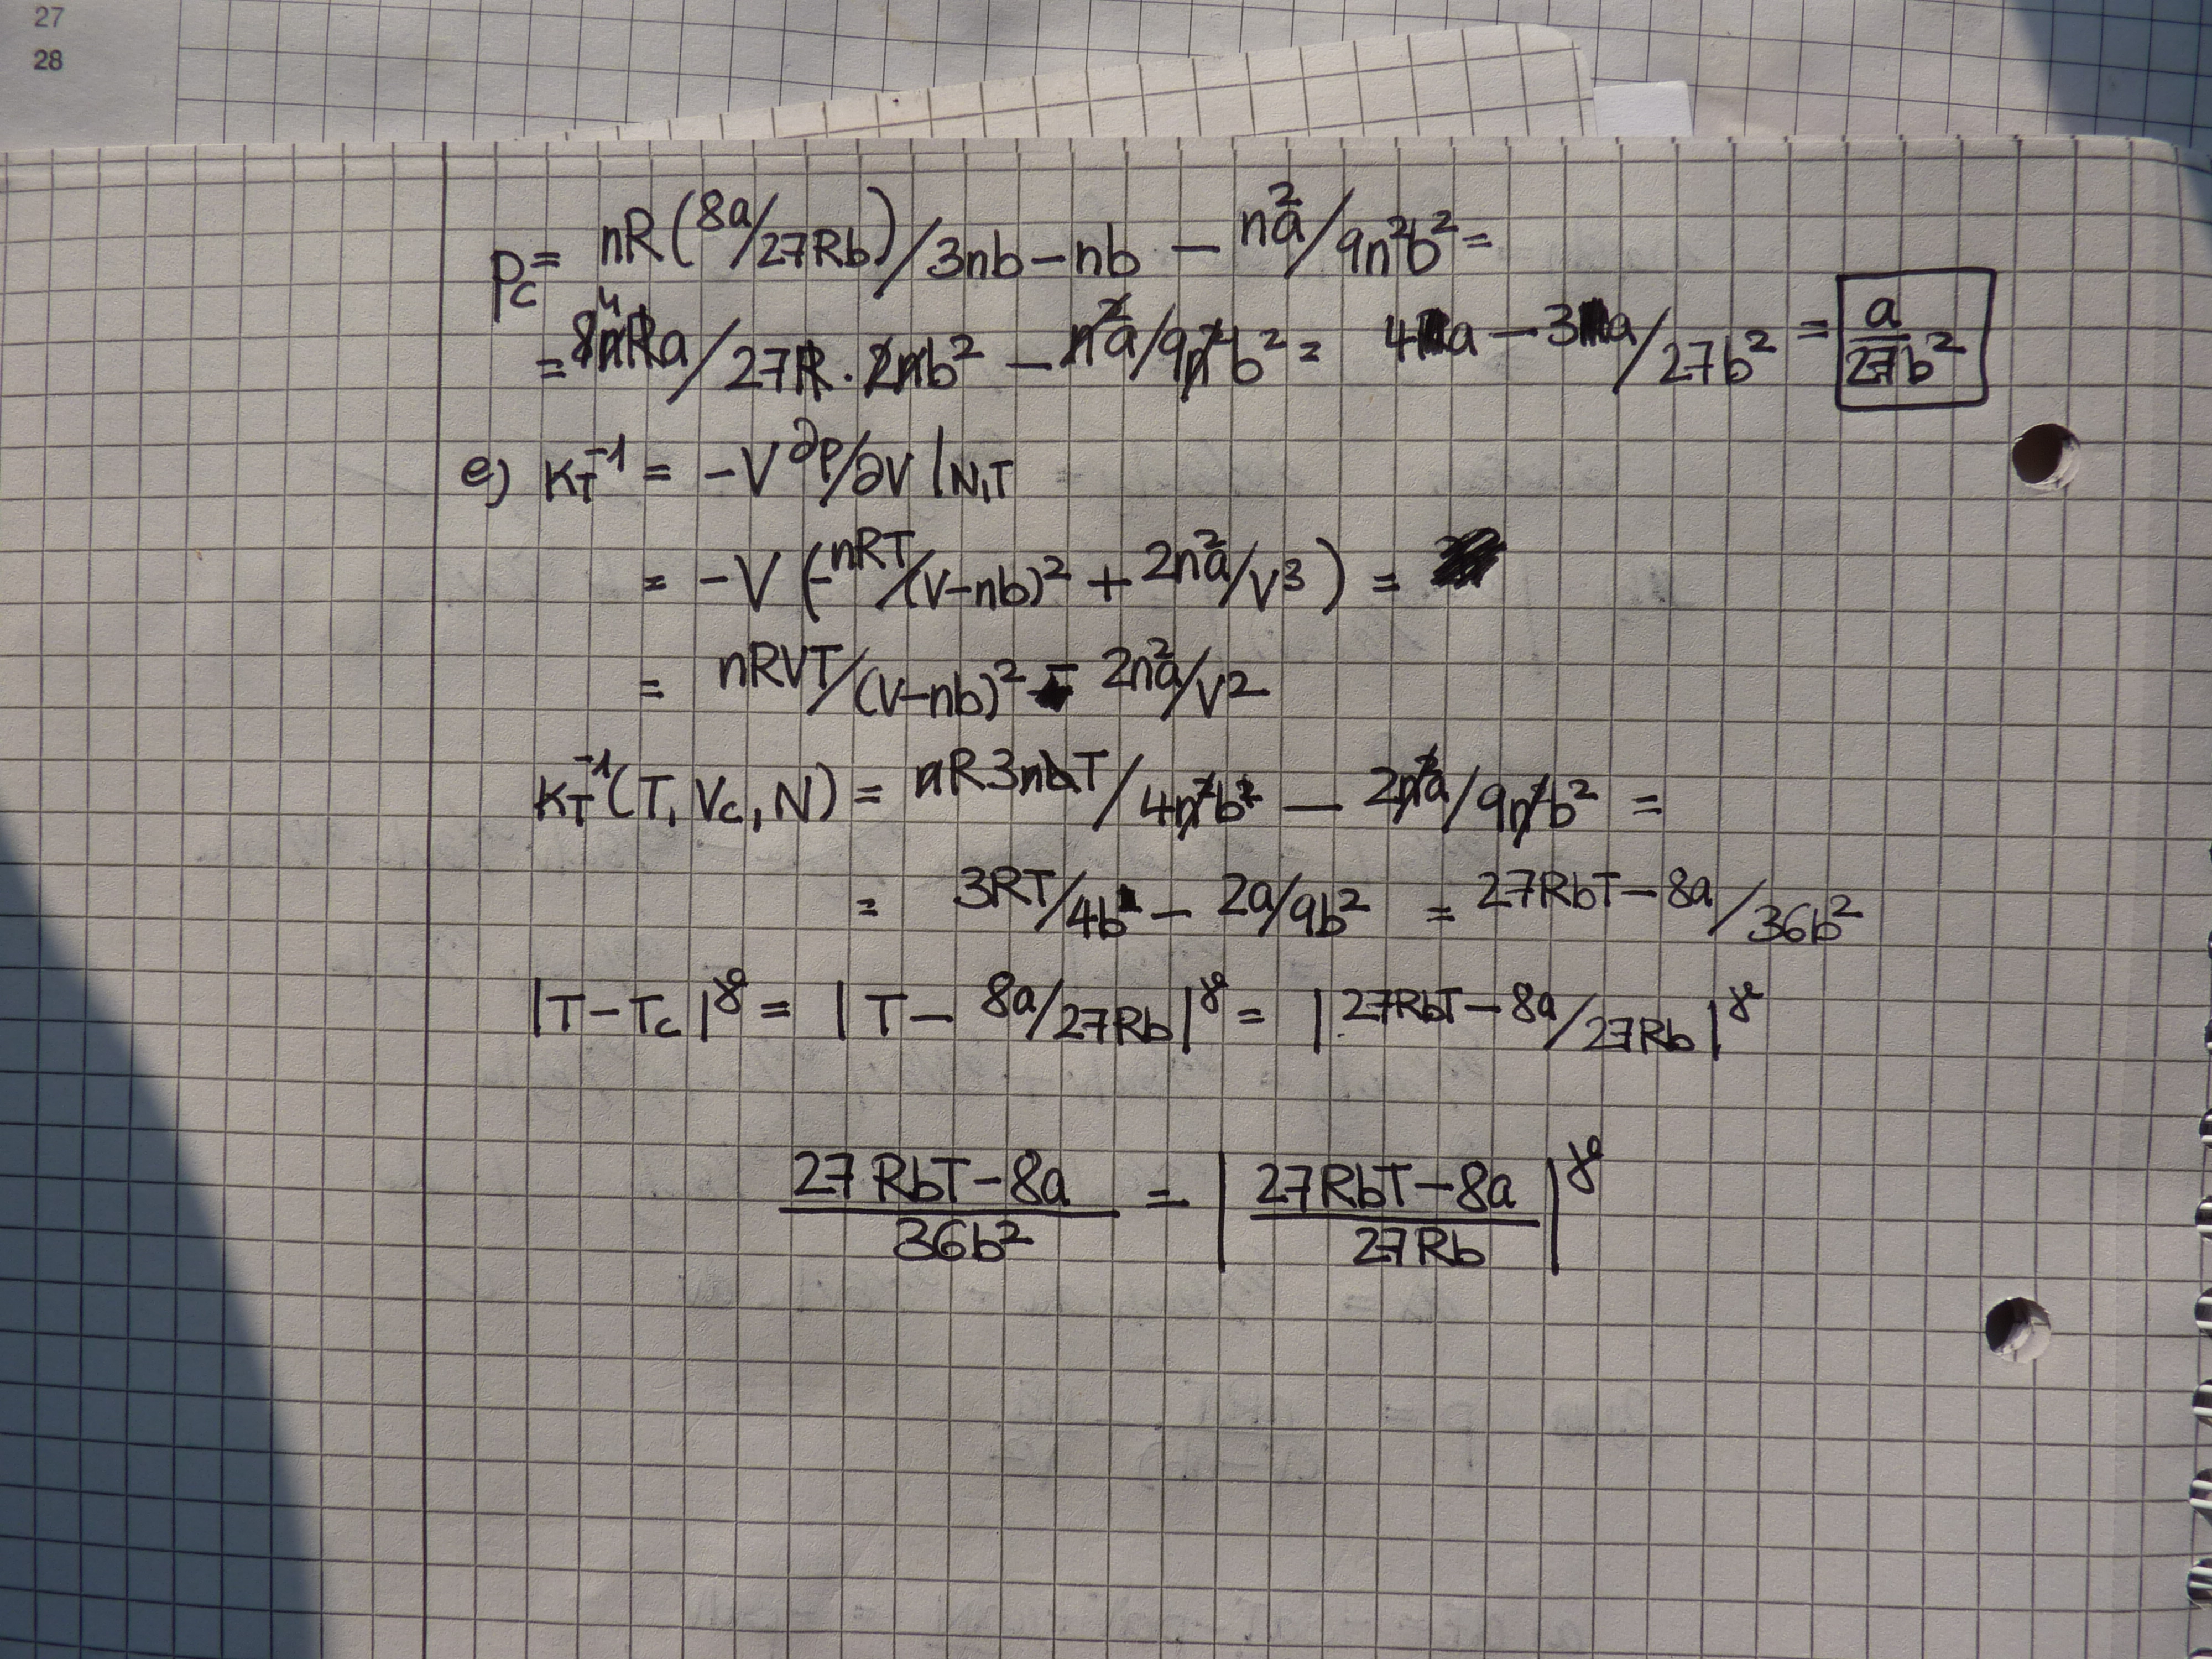 27
28
Pc = nR(8a/27Rb)/3nb-nb - n²a/9n²b² =
= 8nRa/27R·2nb² - n²a/9n²b² = 4a - 3a/27b² = a/27b²
e) κT⁻¹ = -V ∂p/∂V |N,T
= -V (-nRT/(V-nb)² + 2n²a/V³) =
= nRVT/(V-nb)² - 2n²a/V²
κT⁻¹(T, Vc, N) = nR3nbT/4n²b² - 2n²a/9n²b² =
= 3RT/4b - 2a/9b² = 27RbT-8a/36b²
|T-Tc|^γ = |T- 8a/27Rb|^γ = |27RbT-8a/27Rb|^γ
27RbT-8a/36b² = |27RbT-8a/27Rb|^γ